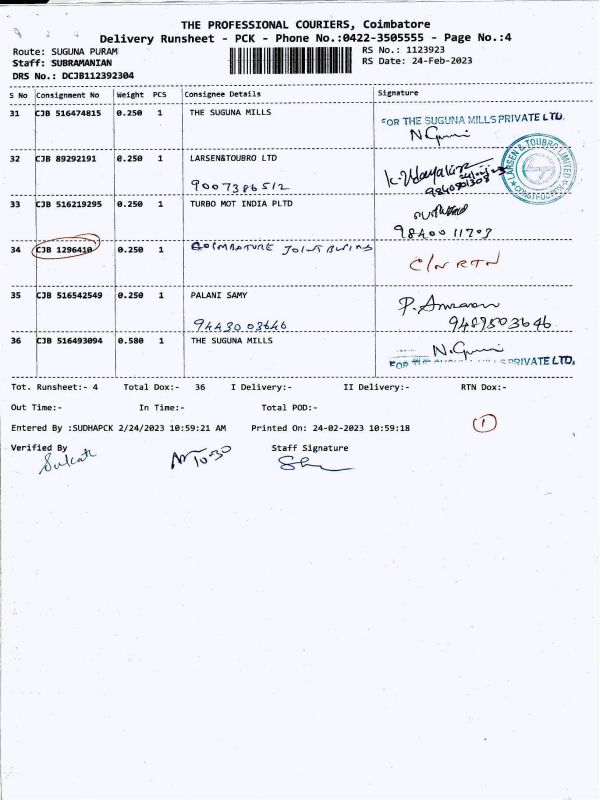 THE PROFESSIONAL COURIERS, Coimbatore
Delivery Runsheet - PCK - Phone No.:0422-3505555 - Page No.:4
Route: SUGUNA PURAM RS No.: 1123923
Staff: SUBRAMANIAN RS Date: 24-Feb-2023
DRS No.: DCJB112392304
S No Consignment No Weight PCS Consignee Details Signature
31 CJB 516474815 0.250 1 THE SUGUNA MILLS FOR THE SUGUNA MILLS PRIVATE LTD.
32 CJB 89292191 0.250 1 LARSEN&TOUBRO LTD
LARSEN & TOUBRO LIMITED
9007386512 9840801308
33 CJB 516219295 0.250 1 TURBO MOT INDIA PLTD
9840011703
34 CJB 1296410 0.250 1 COIMBATORE JOINT C/N RTN
35 CJB 516542549 0.250 1 PALANI SAMY
9443003646 9489503646
36 CJB 516493094 0.580 1 THE SUGUNA MILLS
PRIVATE LTD.
Tot. Runsheet:- 4 Total Dox:- 36 I Delivery:- II Delivery:- RTN Dox:-
Out Time:- In Time:- Total POD:-
Entered By :SUDHAPCK 2/24/2023 10:59:21 AM Printed On: 24-02-2023 10:59:18
1
Verified By Staff Signature